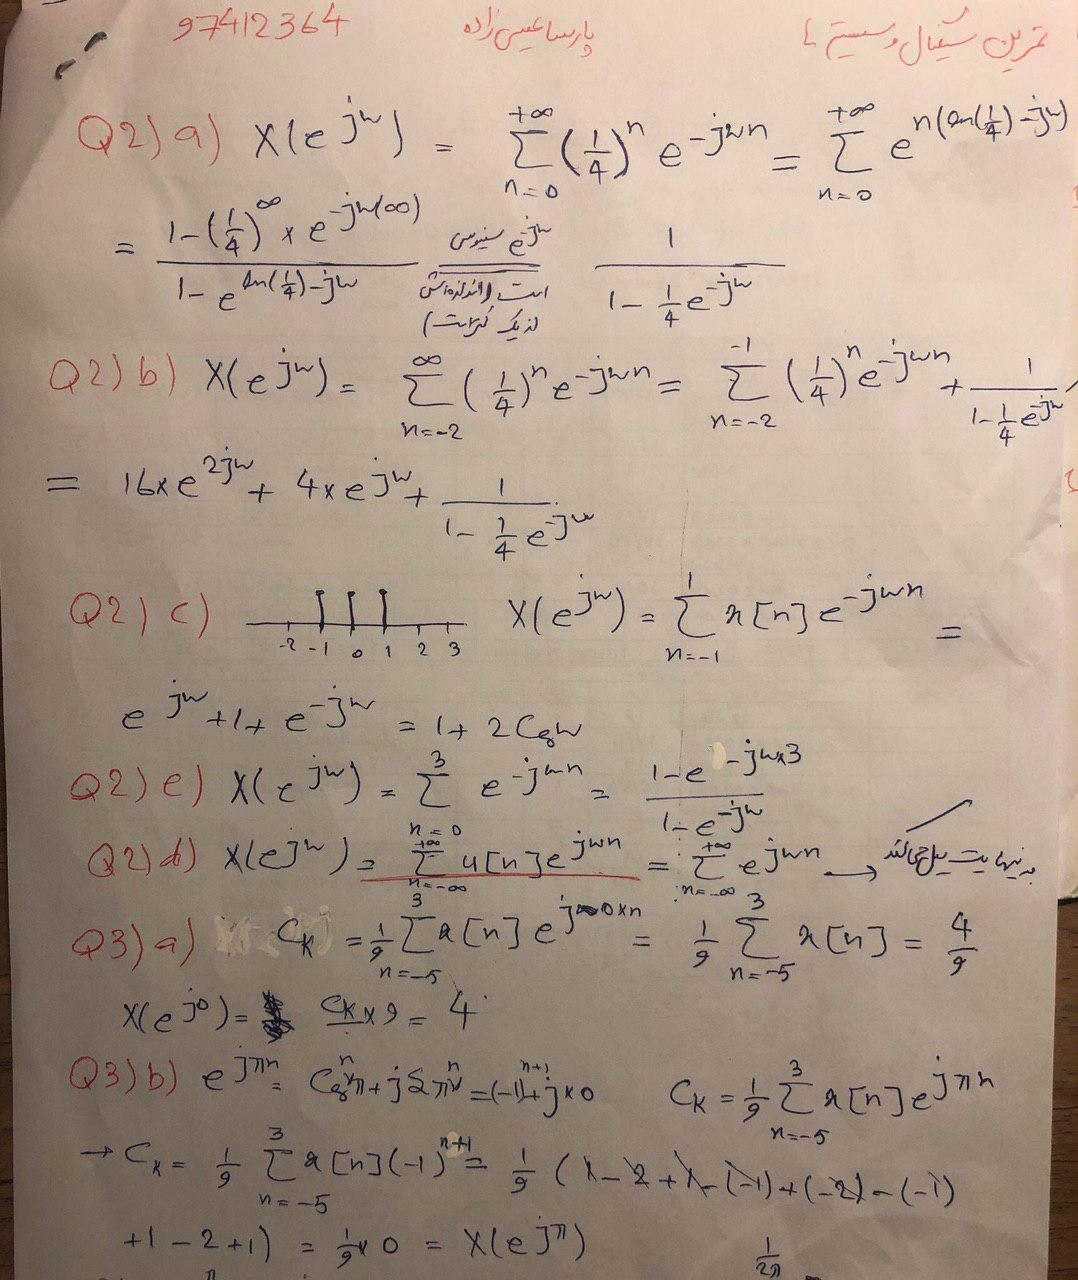 97412364 پارسا عیسی زاده تمرین سیگنال و سیستم ها
Q2) a) X(e^{jw}) = \sum_{n=0}^{+∞} (1/4)^n e^{-jwn} = \sum_{n=0}^{+∞} e^{n(ln(1/4)-jw)}
= \frac{1-(1/4)^∞ × e^{-jw(∞)}}{1-e^{ln(1/4)-jw}} = \frac{1}{1-\frac{1}{4}e^{-jw}}
e^{-jw} سینوسی
است (اندازه‌اش
از یک است)
Q2) b) X(e^{jw}) = \sum_{n=-2}^{∞} (1/4)^n e^{-jwn} = \sum_{n=-2}^{-1} (1/4)^n e^{-jwn} + \frac{1}{1-\frac{1}{4}e^{-jw}}
= 16×e^{2jw} + 4×e^{jw} + \frac{1}{1-\frac{1}{4}e^{-jw}}
Q2) c) -2 -1 0 1 2 3 X(e^{jw}) = \sum_{n=-1}^{1} x[n] e^{-jwn} =
e^{jw} + 1 + e^{-jw} = 1 + 2 Cos w
Q2) e) X(e^{jw}) = \sum_{n=0}^{3} e^{-jwn} = \frac{1-e^{-jw×3}}{1-e^{-jw}}
Q2) d) X(e^{jw}) = \sum_{n=-∞}^{+∞} u[n] e^{jwn} = \sum_{n=-∞}^{+∞} e^{jwn} → بی نهایت میل می‌کند
Q3) a) C_K = \frac{1}{9} \sum_{n=-5}^{3} x[n] e^{j0×n} = \frac{1}{9} \sum_{n=-5}^{3} x[n] = \frac{4}{9}
X(e^{j0}) = C_K × 9 = 4
Q3) b) e^{jπn} = Cos^n π + j S π^n = (-1)^{n+1} + j×0 C_K = \frac{1}{9} \sum_{n=-5}^{3} x[n] e^{jπn}
→ C_K = \frac{1}{9} \sum_{n=-5}^{3} x[n] (-1)^{n+1} = \frac{1}{9} (1 - 2 + 1 - (-1) + (-2) - (-1)
+1 - 2 + 1) = \frac{1}{9} × 0 = X(e^{jπ})
\frac{1}{2π}